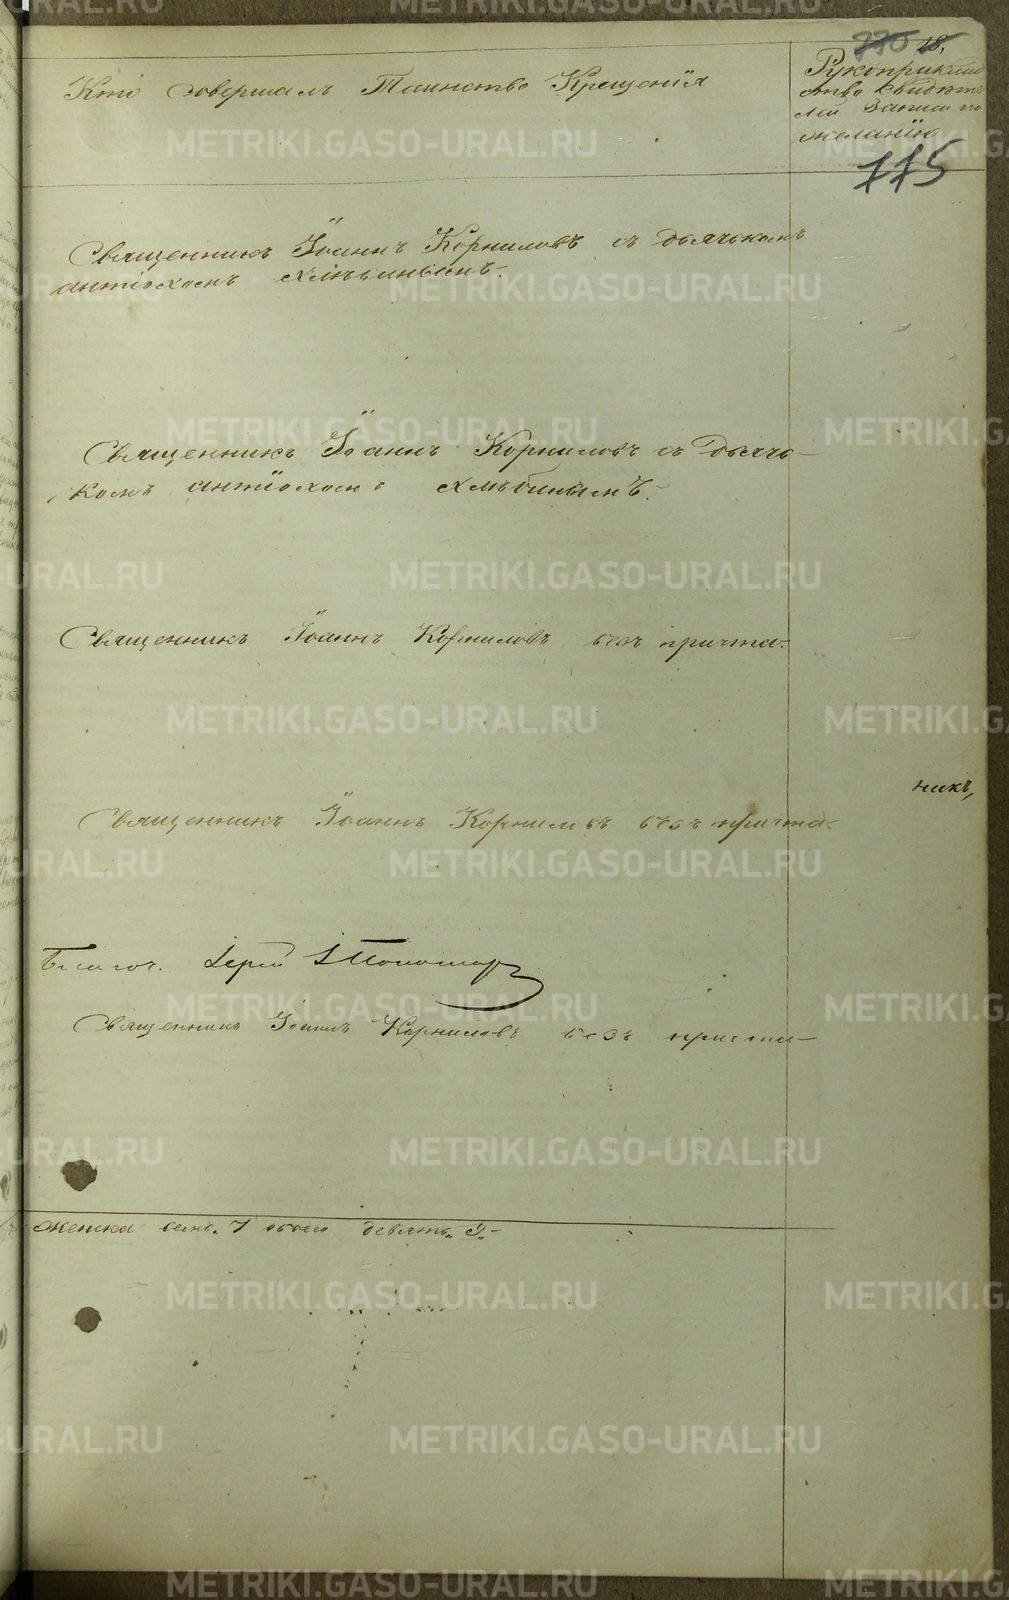 18.
Кто совершалъ Таинство Крещенія
Рукоприклад
ство свидѣте
лей записи по
желанію
115
Священникъ Іоаннъ Корниловъ съ дьячькомъ
антіохомъ хлѣбинымъ.
Священникъ Іоаннъ Корниловъ съ Дьячь-
комъ антіохомъ хлѣбинымъ.
Священникъ Іоаннъ Корниловъ безъ причта.
никъ,
Священникъ Іоаннъ Корниловъ безъ причта.
Благоч. Іерей І Пономар
Священникъ Іоаннъ Корниловъ безъ причта
женска семь 7 обоего девять 9.
METRIKI.GASO-URAL.RU